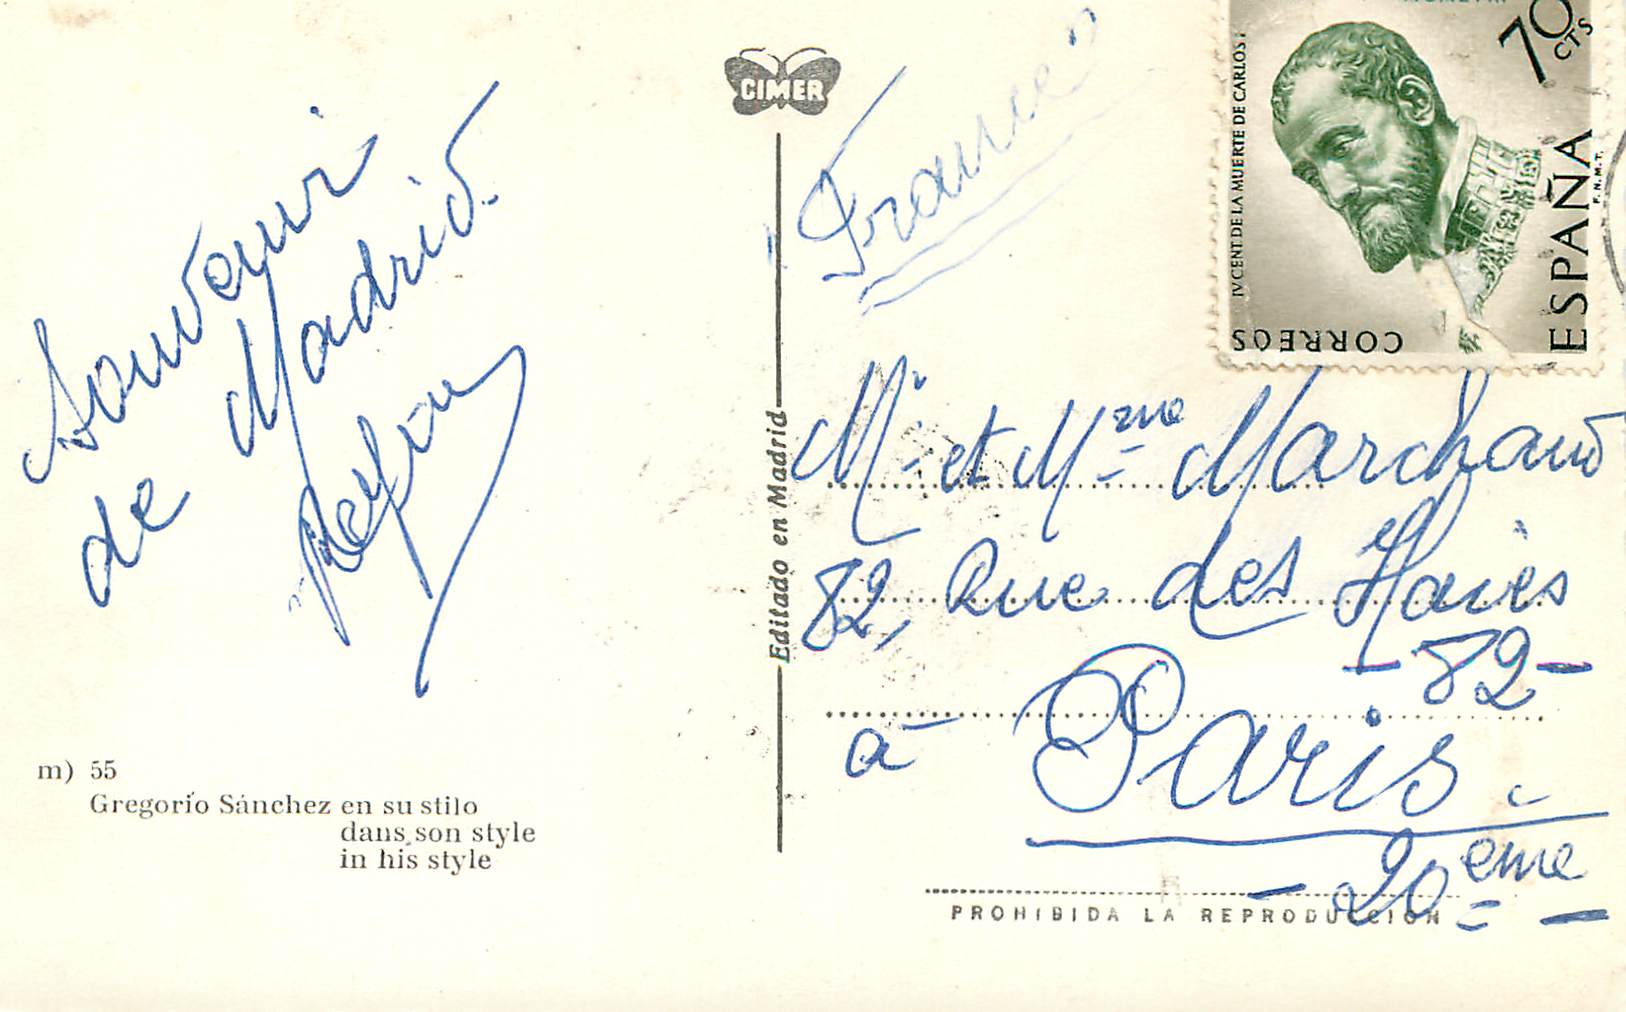 Souvenir
de Madrid.
m) 55
Gregorio Sánchez en su stilo
dans son style
in his style
CIMER
Editado en Madrid
France
70 CTS
IV CENT DE LA MUERTE DE CARLOS I
CORREOS
ESPAÑA
F.N.M.T.
Mr. et Mme Marchand
82, Rue des Haies
- 82 -
à Paris.
- 20 ème -
PROHIBIDA LA REPRODUCCION